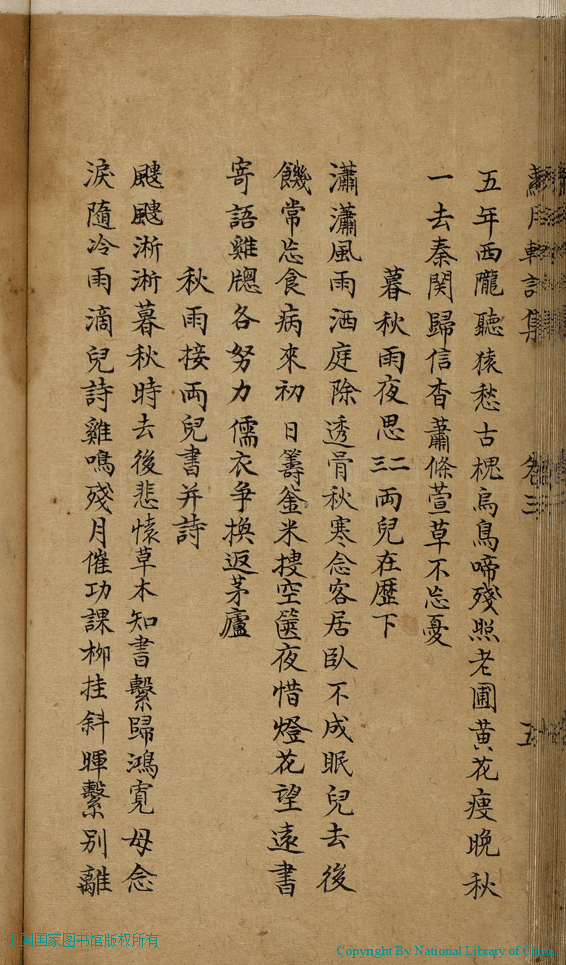 月軒詩集 卷三
五年西隴聽猿愁古槐烏鳥啼殘照老圃黃花瘦晚秋
一去秦関歸信杳蕭條萱草不忘憂
暮秋雨夜思二三兩兒在歷下
瀟瀟風雨洒庭除透骨秋寒念客居臥不成眠兒去後
饑常忘食病來初日籌釜米搜空篋夜惜燈花望遠書
寄語雞牕各努力儒衣爭換返茅廬
秋雨接兩兒書并詩
颼颼淅淅暮秋時去後悲懷草木知書繫歸鴻寬母念
淚隨冷雨滴兒詩雞鳴殘月催功課柳挂斜暉繫別離
中国国家图书馆版权所有
Copyright By National Library of China